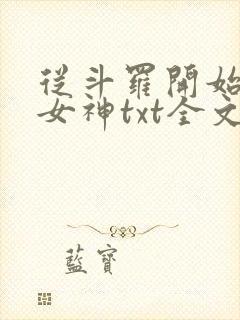 從斗羅開始
女神txt全文
藍寶